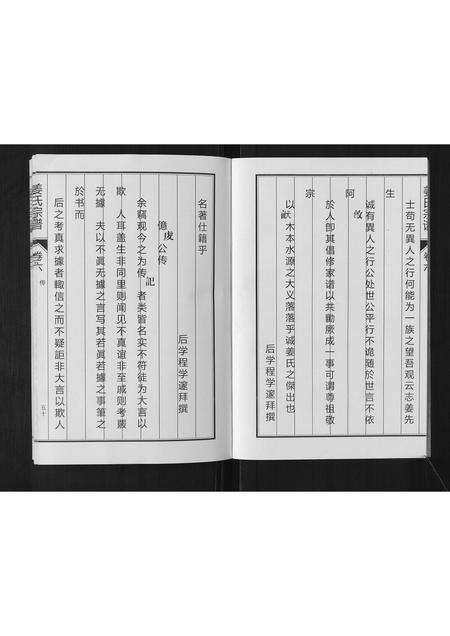 士苟无異人之行何能为一族之望吾观云志姜先
生
诚有異人之行公处世公平行不诡随於世言不依
阿
於人卽其倡修家谱以共勷厥成一事可谓尊祖敬
宗
以 木本水源之大义落落乎诚姜氏之傑出也
后学程学邃拜撰
名著仕籍乎
后学程学邃拜撰
億 公传
余竊观今之为传記者类皆名实不符徒为大言以
欺 人耳盖生非同里则闻见不真谊非至戚则考覈
无據 夫以不眞无據之言写其若眞若據之事筆之
於书而
后之考真求據者輙信之而不疑詎非大言以欺人
姜氏宗谱 卷六 传 五十